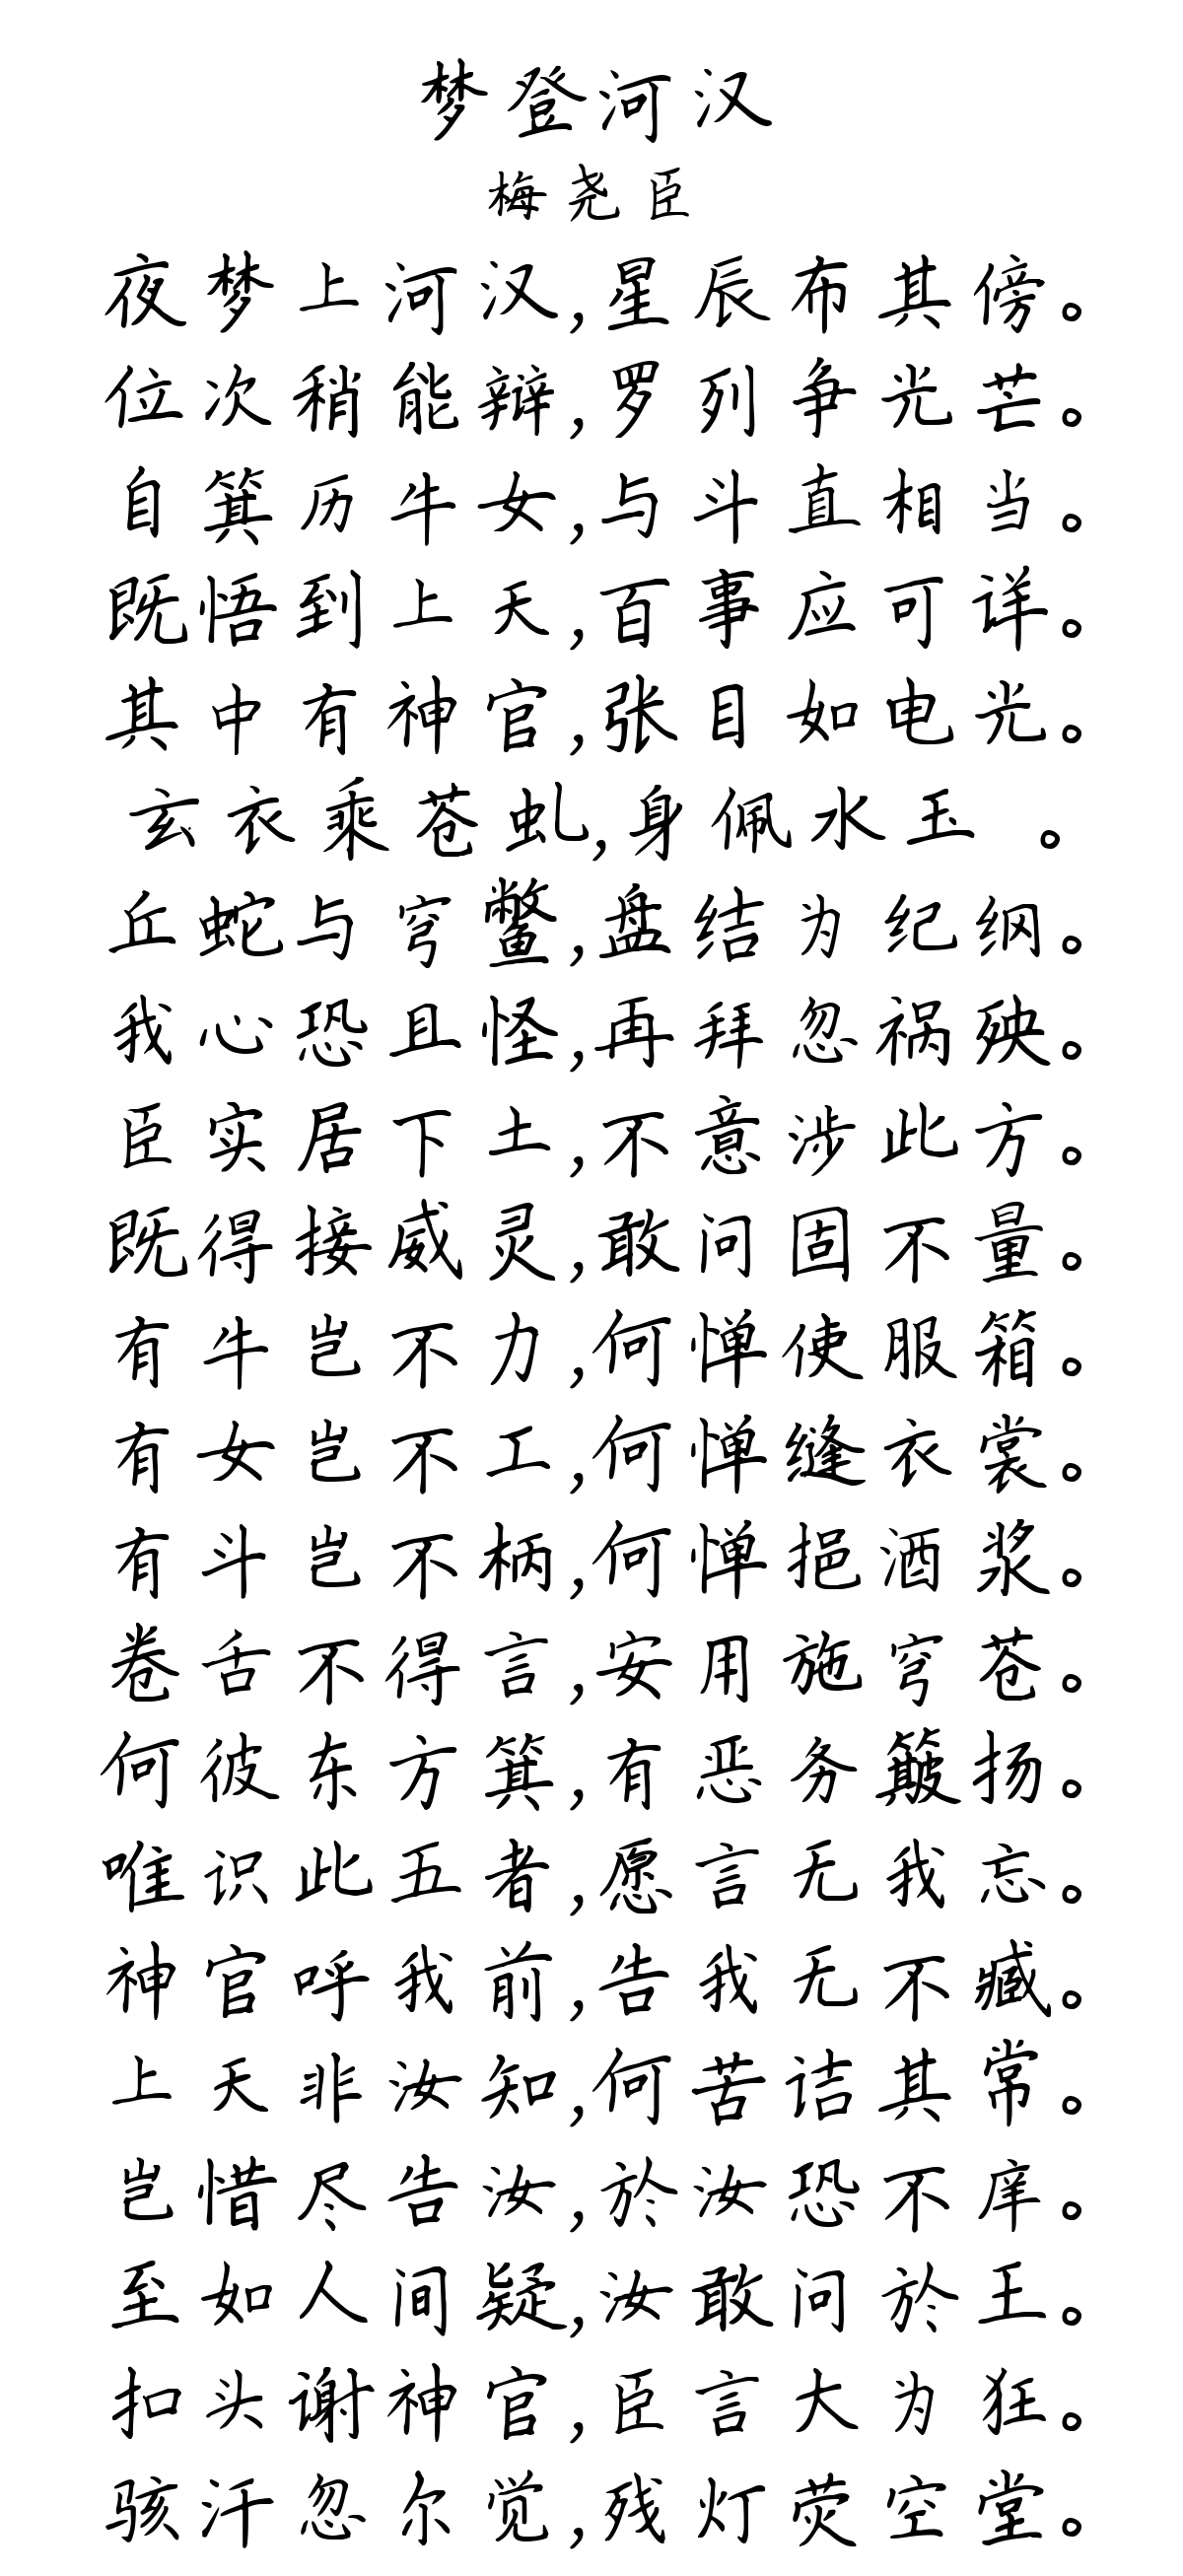 梦登河汉
梅尧臣
夜梦上河汉,星辰布其傍。
位次稍能辩,罗列争光芒。
自箕历牛女,与斗直相当。
既悟到上天,百事应可详。
其中有神官,张目如电光。
玄衣乘苍虬,身佩水玉 。
丘蛇与穹鳖,盘结为纪纲。
我心恐且怪,再拜忽祸殃。
臣实居下土,不意涉此方。
既得接威灵,敢问固不量。
有牛岂不力,何惮使服箱。
有女岂不工,何惮缝衣裳。
有斗岂不柄,何惮挹酒浆。
卷舌不得言,安用施穹苍。
何彼东方箕,有恶务簸扬。
唯识此五者,愿言无我忘。
神官呼我前,告我无不臧。
上天非汝知,何苦诘其常。
岂惜尽告汝,於汝恐不庠。
至如人间疑,汝敢问於王。
扣头谢神官,臣言大为狂。
骇汗忽尔觉,残灯荧空堂。